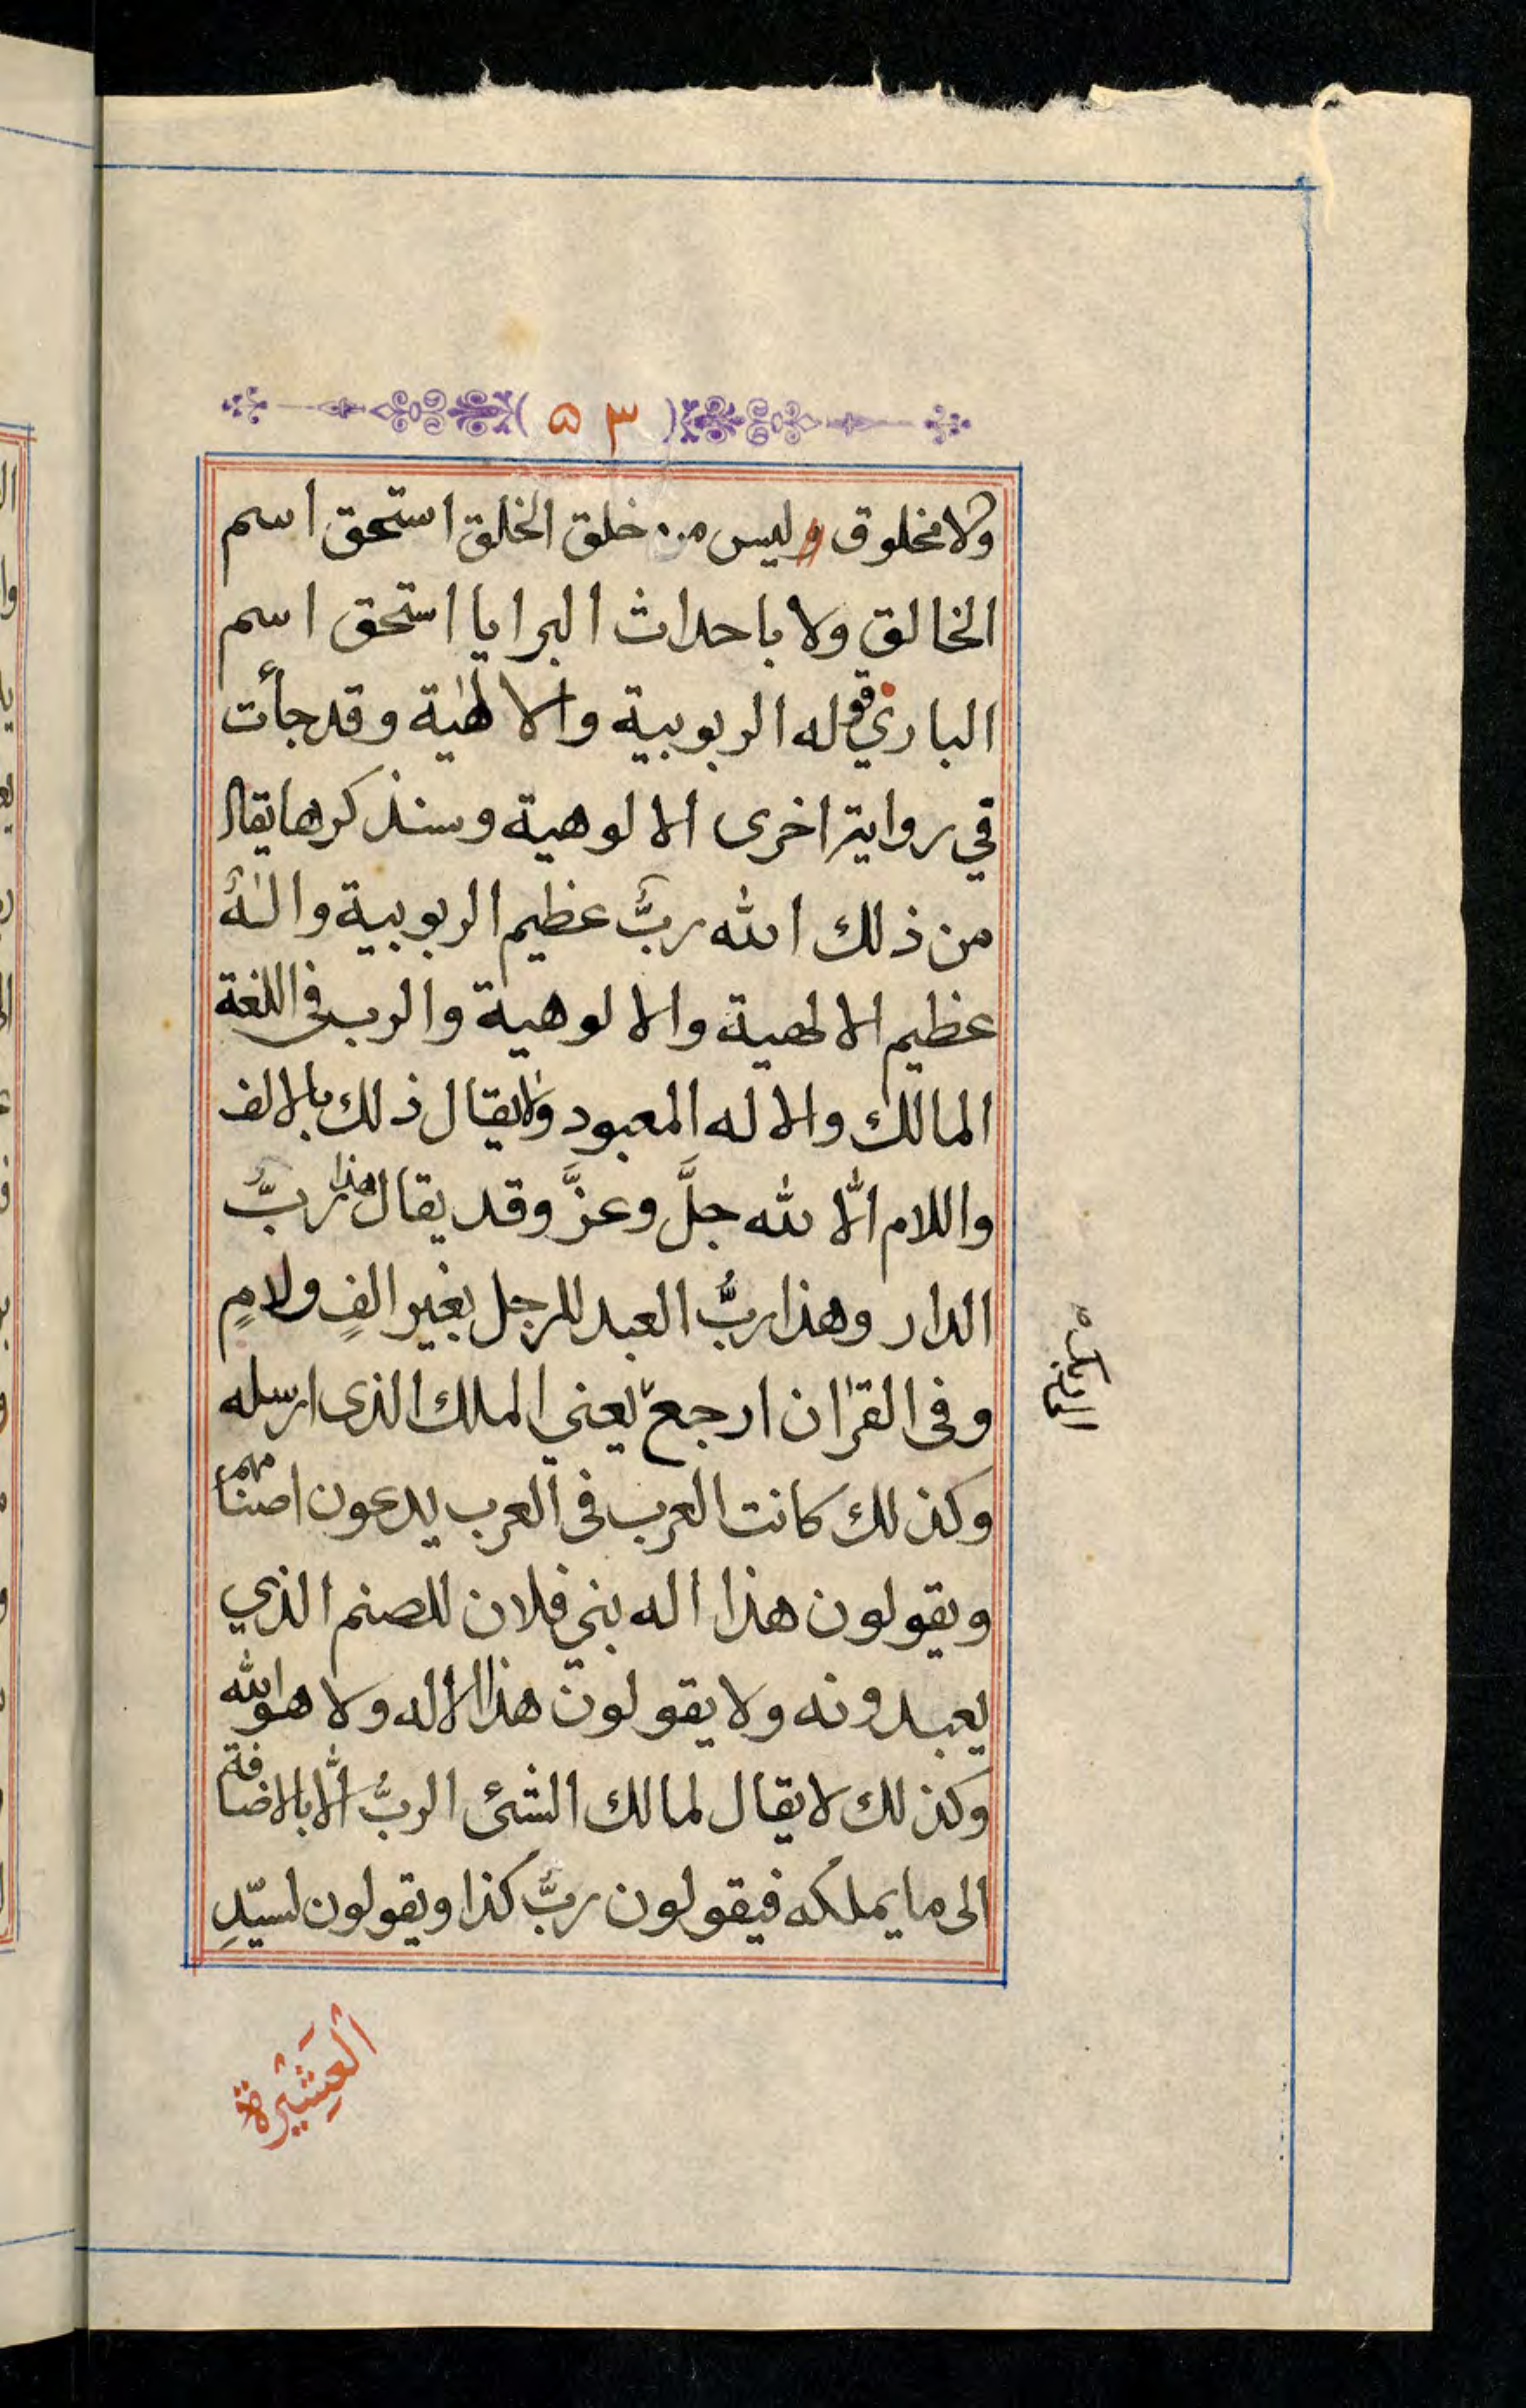 ٥٣
ولا مخلوق وليس من خلق الخلق استحق اسم
الخالق ولا باحداث البرايا استحق اسم
الباري قوله الربوبية والالهية وقد جأت
في رواية اخرى الالوهية وسنذكرها يقال
من ذلك الله ربٌّ عظيم الربوبية والهٌ
عظيم الالهية والالوهية والرب في اللغة
المالك والاله المعبود ولا يقال ذلك بالالف
واللام الّا لله جلَّ وعزَّ وقد يقال هذا ربُّ
الدار وهذا ربُّ العبد للرجل بغير الفٍ ولامٍ
وفى القران ارجع يعني الملك الذى ارسله
الى ربك
وكذلك كانت العرب فى العرب يدعون اصنامهم
ويقولون هذا اله بني فلان للصنم الذي
يعبدونه ولا يقولون هذا الاله ولا هو الله
وكذلك لا يقال لمالك الشئ الربُّ الّا بالاضافة
الى ما يملكه فيقولون ربُّ كذا ويقولون لسيّدِ
العَشيْرة